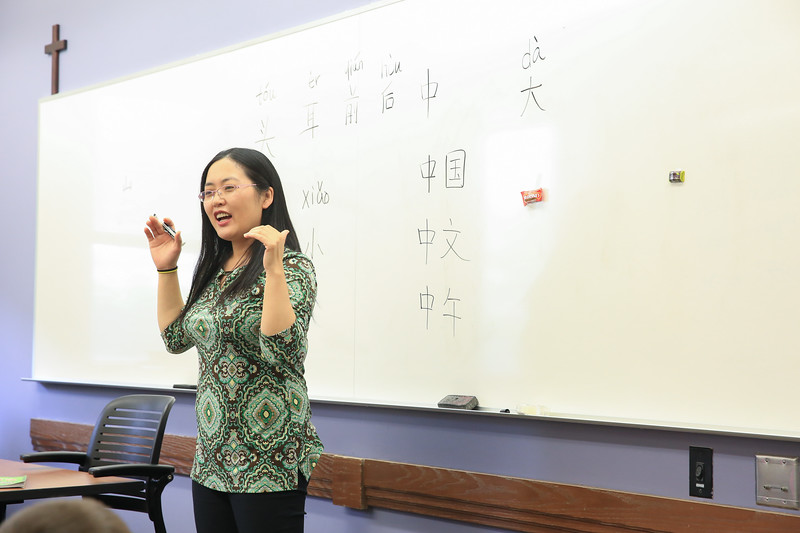 tóu ěr qián hòu dà
头 耳 前 后 中 大
中国
xiǎo
小 中文
中午